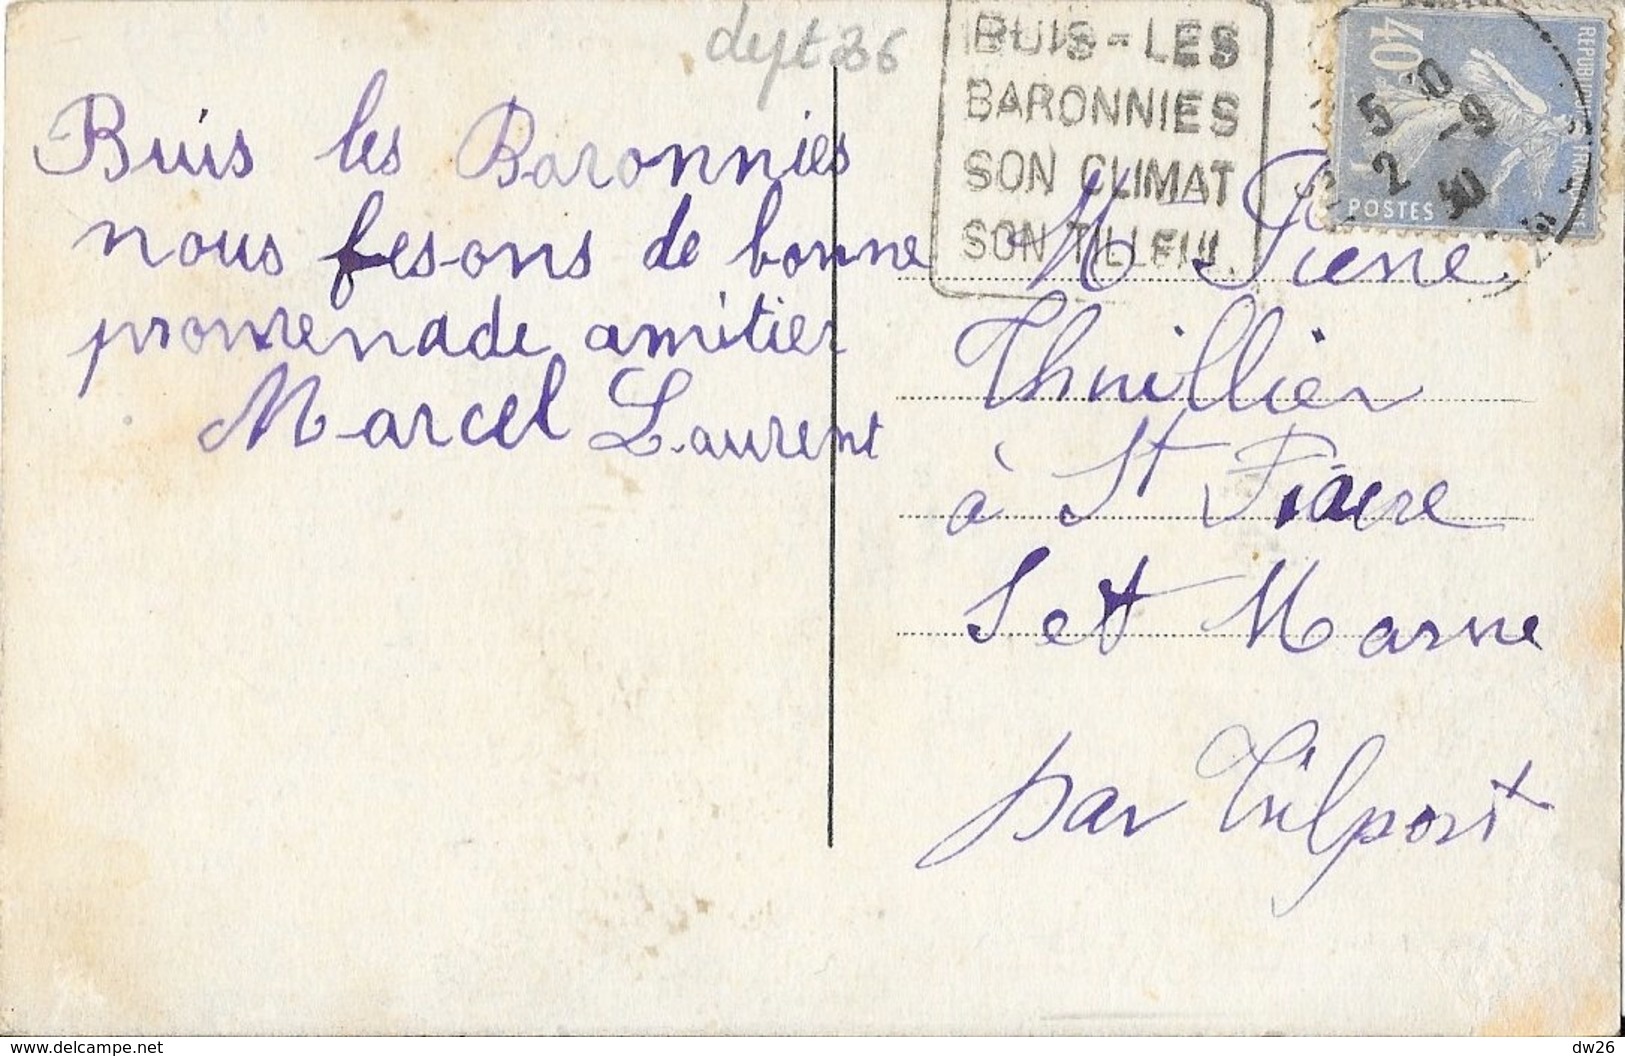 dept 36
Buis les Baronnies
nous fesons de bonne
promenade amitier
Marcel Laurent
BUIS-LES
BARONNIES
SON CLIMAT
SON TILLEUL
REPUBLIQUE FRANCAISE
40c
POSTES
5 0
2 -9
30
Mr Pierre
Thuillier
à St Fiacre
Set Marne
par Trilport
www.delcampe.net
dw26